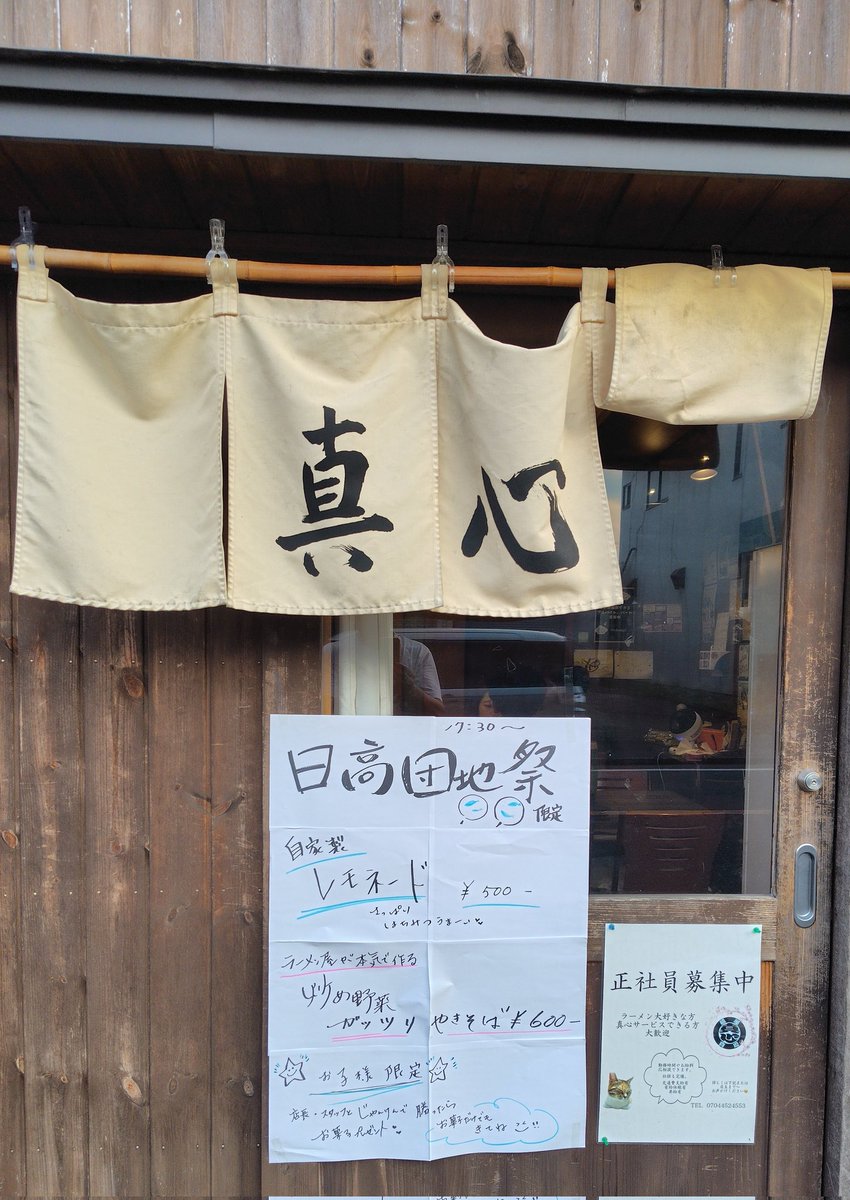 真心
17:30～
日高団地祭
限定
自家製
レモネード
¥500-
さっぱり
はちみつうまーい
ラーメン屋が本気で作る
炒め野菜
ガッツリ やきそば ¥600-
お子様限定
店長・スタッフとじゃんけんで勝ったら
お菓子プレゼント
お菓子だけでも
きてね
正社員募集中
ラーメン大好きな方
真心サービスできる方
大歓迎
TEL 07044524553